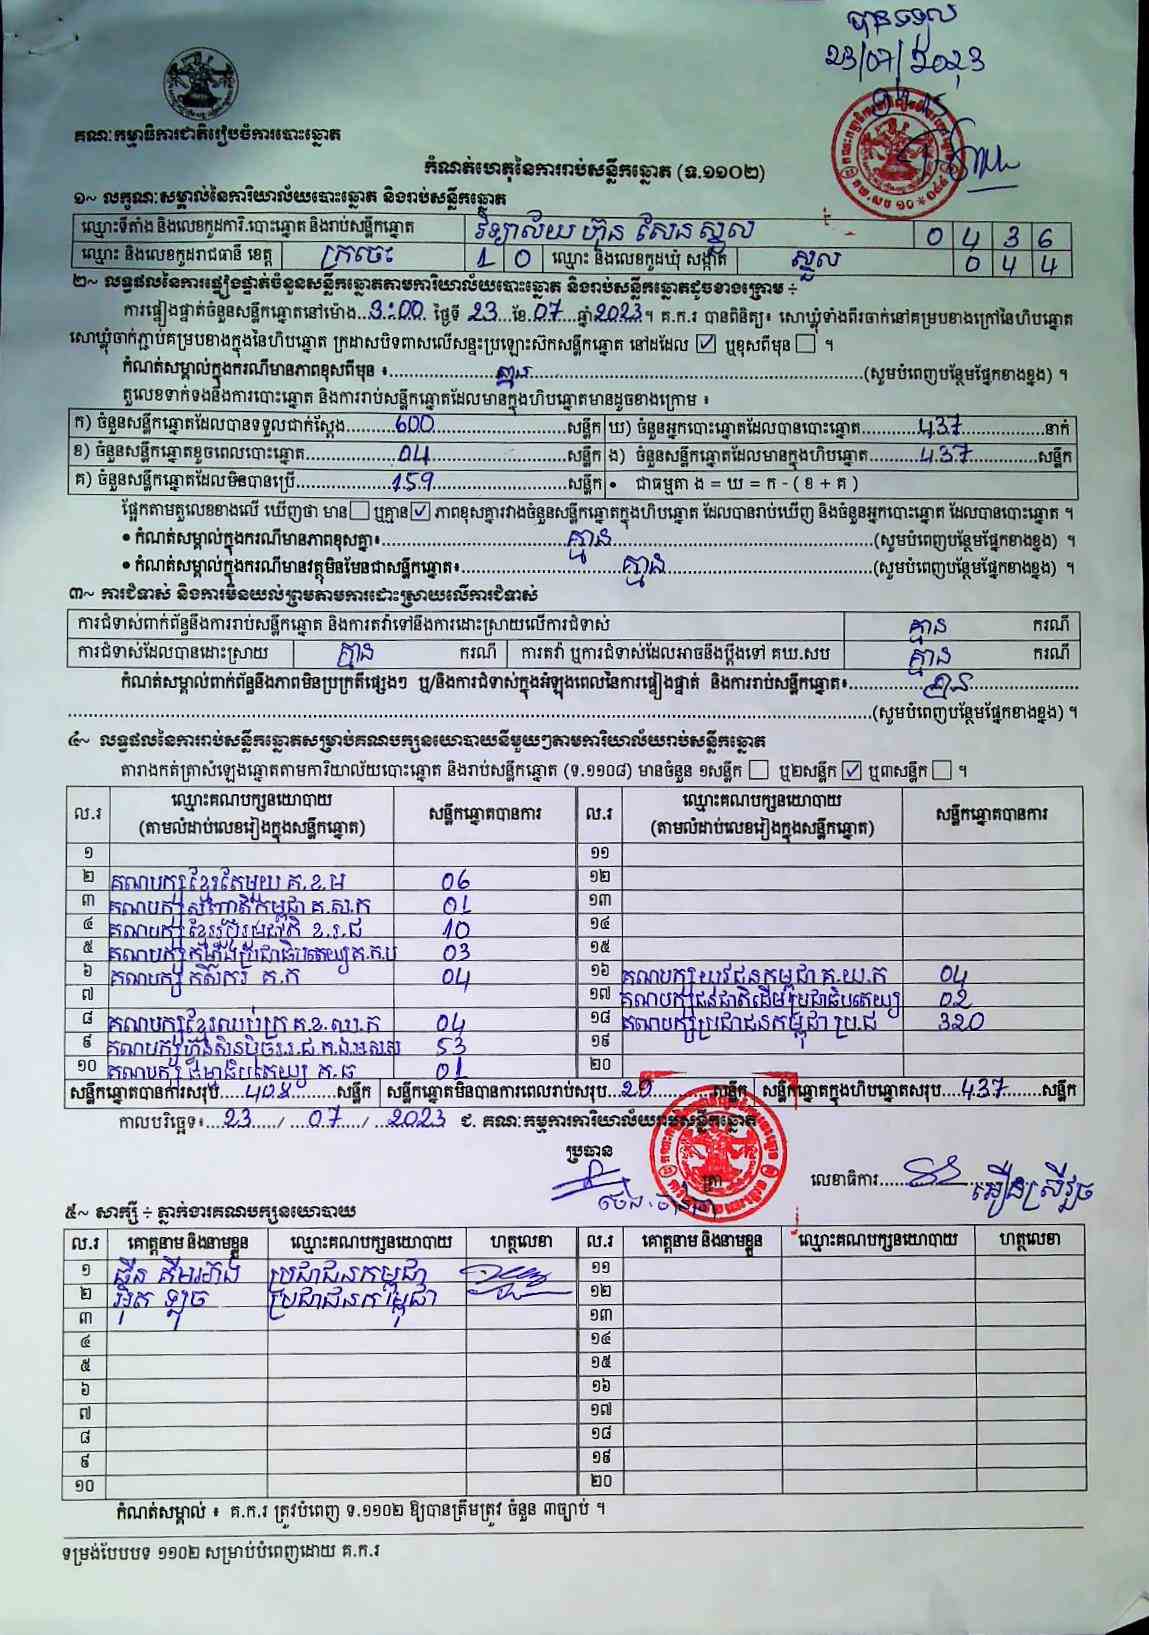 បានទទួល
23/07/2023
គណៈកម្មាធិការជាតិរៀបចំការបោះឆ្នោត
កំណត់ហេតុនៃការរាប់សន្លឹកឆ្នោត (ទ.១១០២)
១~ លក្ខណៈសម្គាល់នៃការិយាល័យបោះឆ្នោត និងរាប់សន្លឹកឆ្នោត
ឈ្មោះទីតាំង និងលេខកូដការិ.បោះឆ្នោត និងរាប់សន្លឹកឆ្នោត វិទ្យាល័យ ហ៊ុន សែន ស្នួល 0 4 3 6
ឈ្មោះ និងលេខកូដរាជធានី ខេត្ត ក្រចេះ 1 0 ឈ្មោះ និងលេខកូដឃុំ សង្កាត់ ស្នួល 0 4 4
២~ លទ្ធផលនៃការផ្ទៀងផ្ទាត់ចំនួនសន្លឹកឆ្នោតតាមការិយាល័យបោះឆ្នោត និងរាប់សន្លឹកឆ្នោតដូចខាងក្រោម ÷
ការផ្ទៀងផ្ទាត់ចំនួនសន្លឹកឆ្នោតនៅម៉ោង..3:00 ថ្ងៃទី 23...ខែ.07....ឆ្នាំ2023.។ គ.ក.រ បានពិនិត្យ៖ សោឃ្លុំទាំងពីរចាក់នៅគម្របខាងក្រៅនៃហិបឆ្នោត
សោឃ្លុំចាក់ភ្ជាប់គម្របខាងក្នុងនៃហិបឆ្នោត ក្រដាសបិទពាសលើសន្ទះប្រឡោះសិកសន្លឹកឆ្នោត នៅដដែល ☑ ឬខុសពីមុន ☐ ។
កំណត់សម្គាល់ក្នុងករណីមានភាពខុសពីមុន ៖....គ្មាន....(សូមបំពេញបន្ថែមផ្នែកខាងខ្នង) ។
តួលេខទាក់ទងនឹងការបោះឆ្នោត និងការរាប់សន្លឹកឆ្នោតដែលមានក្នុងហិបឆ្នោតមានដូចខាងក្រោម ៖
ក) ចំនួនសន្លឹកឆ្នោតដែលបានទទួលជាក់ស្តែង....600....សន្លឹក ឃ) ចំនួនអ្នកបោះឆ្នោតដែលបានបោះឆ្នោត....437....នាក់
ខ) ចំនួនសន្លឹកឆ្នោតខូចពេលបោះឆ្នោត....04....សន្លឹក ង) ចំនួនសន្លឹកឆ្នោតដែលមានក្នុងហិបឆ្នោត....437....សន្លឹក
គ) ចំនួនសន្លឹកឆ្នោតដែលមិនបានប្រើ....159....សន្លឹក • ជាធម្មតា ង = ឃ = ក - ( ខ + គ )
ផ្អែកតាមតួលេខខាងលើ ឃើញថា មាន ☐ ឬគ្មាន ☑ ភាពខុសគ្នារវាងចំនួនសន្លឹកឆ្នោតក្នុងហិបឆ្នោត ដែលបានរាប់ឃើញ និងចំនួនអ្នកបោះឆ្នោត ដែលបានបោះឆ្នោត ។
• កំណត់សម្គាល់ក្នុងករណីមានភាពខុសគ្នា៖....គ្មាន....(សូមបំពេញបន្ថែមផ្នែកខាងខ្នង) ។
• កំណត់សម្គាល់ក្នុងករណីមានវត្ថុមិនមែនជាសន្លឹកឆ្នោត៖....គ្មាន....(សូមបំពេញបន្ថែមផ្នែកខាងខ្នង) ។
៣~ ការជំទាស់ និងការមិនយល់ព្រមតាមការដោះស្រាយលើការជំទាស់
ការជំទាស់ពាក់ព័ន្ធនឹងការរាប់សន្លឹកឆ្នោត និងការតវ៉ាទៅនឹងការដោះស្រាយលើការជំទាស់ គ្មាន ករណី
ការជំទាស់ដែលបានដោះស្រាយ គ្មាន ករណី ការតវ៉ា ឬការជំទាស់ដែលអាចនឹងប្តឹងទៅ គឃ.សប គ្មាន ករណី
កំណត់សម្គាល់ពាក់ព័ន្ធនឹងភាពមិនប្រក្រតីផ្សេងៗ ឬ/និងការជំទាស់ក្នុងអំឡុងពេលនៃការផ្ទៀងផ្ទាត់ និងការរាប់សន្លឹកឆ្នោត៖....គ្មាន....
....(សូមបំពេញបន្ថែមផ្នែកខាងខ្នង) ។
៤~ លទ្ធផលនៃការរាប់សន្លឹកឆ្នោតសម្រាប់គណបក្សនយោបាយនីមួយៗតាមការិយាល័យរាប់សន្លឹកឆ្នោត
តារាងកត់ត្រាសំឡេងឆ្នោតតាមការិយាល័យបោះឆ្នោត និងរាប់សន្លឹកឆ្នោត (ទ.១១០៨) មានចំនួន ១សន្លឹក ☐ ឬ២សន្លឹក ☑ ឬ៣សន្លឹក ☐ ។
ល.រ ឈ្មោះគណបក្សនយោបាយ (តាមលំដាប់លេខរៀងក្នុងសន្លឹកឆ្នោត) សន្លឹកឆ្នោតបានការ ល.រ ឈ្មោះគណបក្សនយោបាយ (តាមលំដាប់លេខរៀងក្នុងសន្លឹកឆ្នោត) សន្លឹកឆ្នោតបានការ
១ ១១
២ គណបក្សខ្មែរតែមួយ គ.ខ.ម 06 ១២
៣ គណបក្សសញ្ជាតិកម្ពុជា គ.ស.ក 01 ១៣
៤ គណបក្សខ្មែររួបរួមជាតិ ខ.រ.ជ 10 ១៤
៥ គណបក្សកម្លាំងប្រជាធិបតេយ្យ គ.ក.ប 03 ១៥
៦ គណបក្ស កសិករ គ.ក 04 ១៦ គណបក្សយុវជនកម្ពុជា គ.យ.ក 04
៧ ១៧ គណបក្សជនជាតិដើមប្រជាធិបតេយ្យ 02
៨ គណបក្សខ្មែរឈប់ក្រ គ.ខ.ឈ.ក 04 ១៨ គណបក្សប្រជាជនកម្ពុជា ប្រ.ជ 320
៩ គណបក្សហ៊្វុនស៊ិនប៉ិច 53 ១៩
១០ គណបក្ស ធម្មាធិបតេយ្យ គ.ធ 01 ២០
សន្លឹកឆ្នោតបានការសរុប....408....សន្លឹក សន្លឹកឆ្នោតមិនបានការពេលរាប់សរុប...29...សន្លឹក សន្លឹកឆ្នោតក្នុងហិបឆ្នោតសរុប....437....សន្លឹក
កាលបរិច្ឆេទ៖...23..../...07..../...2023 ជ. គណៈកម្មការការិយាល័យរាប់សន្លឹកឆ្នោត
ប្រធាន
ត្រា
លេខាធិការ.... អឿន ស្រីវួច
៥~ សាក្សី ÷ ភ្នាក់ងារគណបក្សនយោបាយ
ល.រ គោត្តនាម និងនាមខ្លួន ឈ្មោះគណបក្សនយោបាយ ហត្ថលេខា ល.រ គោត្តនាម និងនាមខ្លួន ឈ្មោះគណបក្សនយោបាយ ហត្ថលេខា
១ ប្រជាជនកម្ពុជា ១១
២ ប្រជាជនកម្ពុជា ១២
៣ ១៣
៤ ១៤
៥ ១៥
៦ ១៦
៧ ១៧
៨ ១៨
៩ ១៩
១០ ២០
កំណត់សម្គាល់ ៖ គ.ក.រ ត្រូវបំពេញ ទ.១១០២ ឱ្យបានត្រឹមត្រូវ ចំនួន ៣ច្បាប់ ។
ទម្រង់បែបបទ ១១០២ សម្រាប់បំពេញដោយ គ.ក.រ